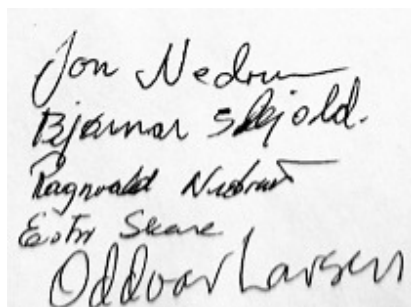 Jon Nedrum
Bjørnar Skjold.
Ragnvald Nedrum
Skare
Oddvar Larsen